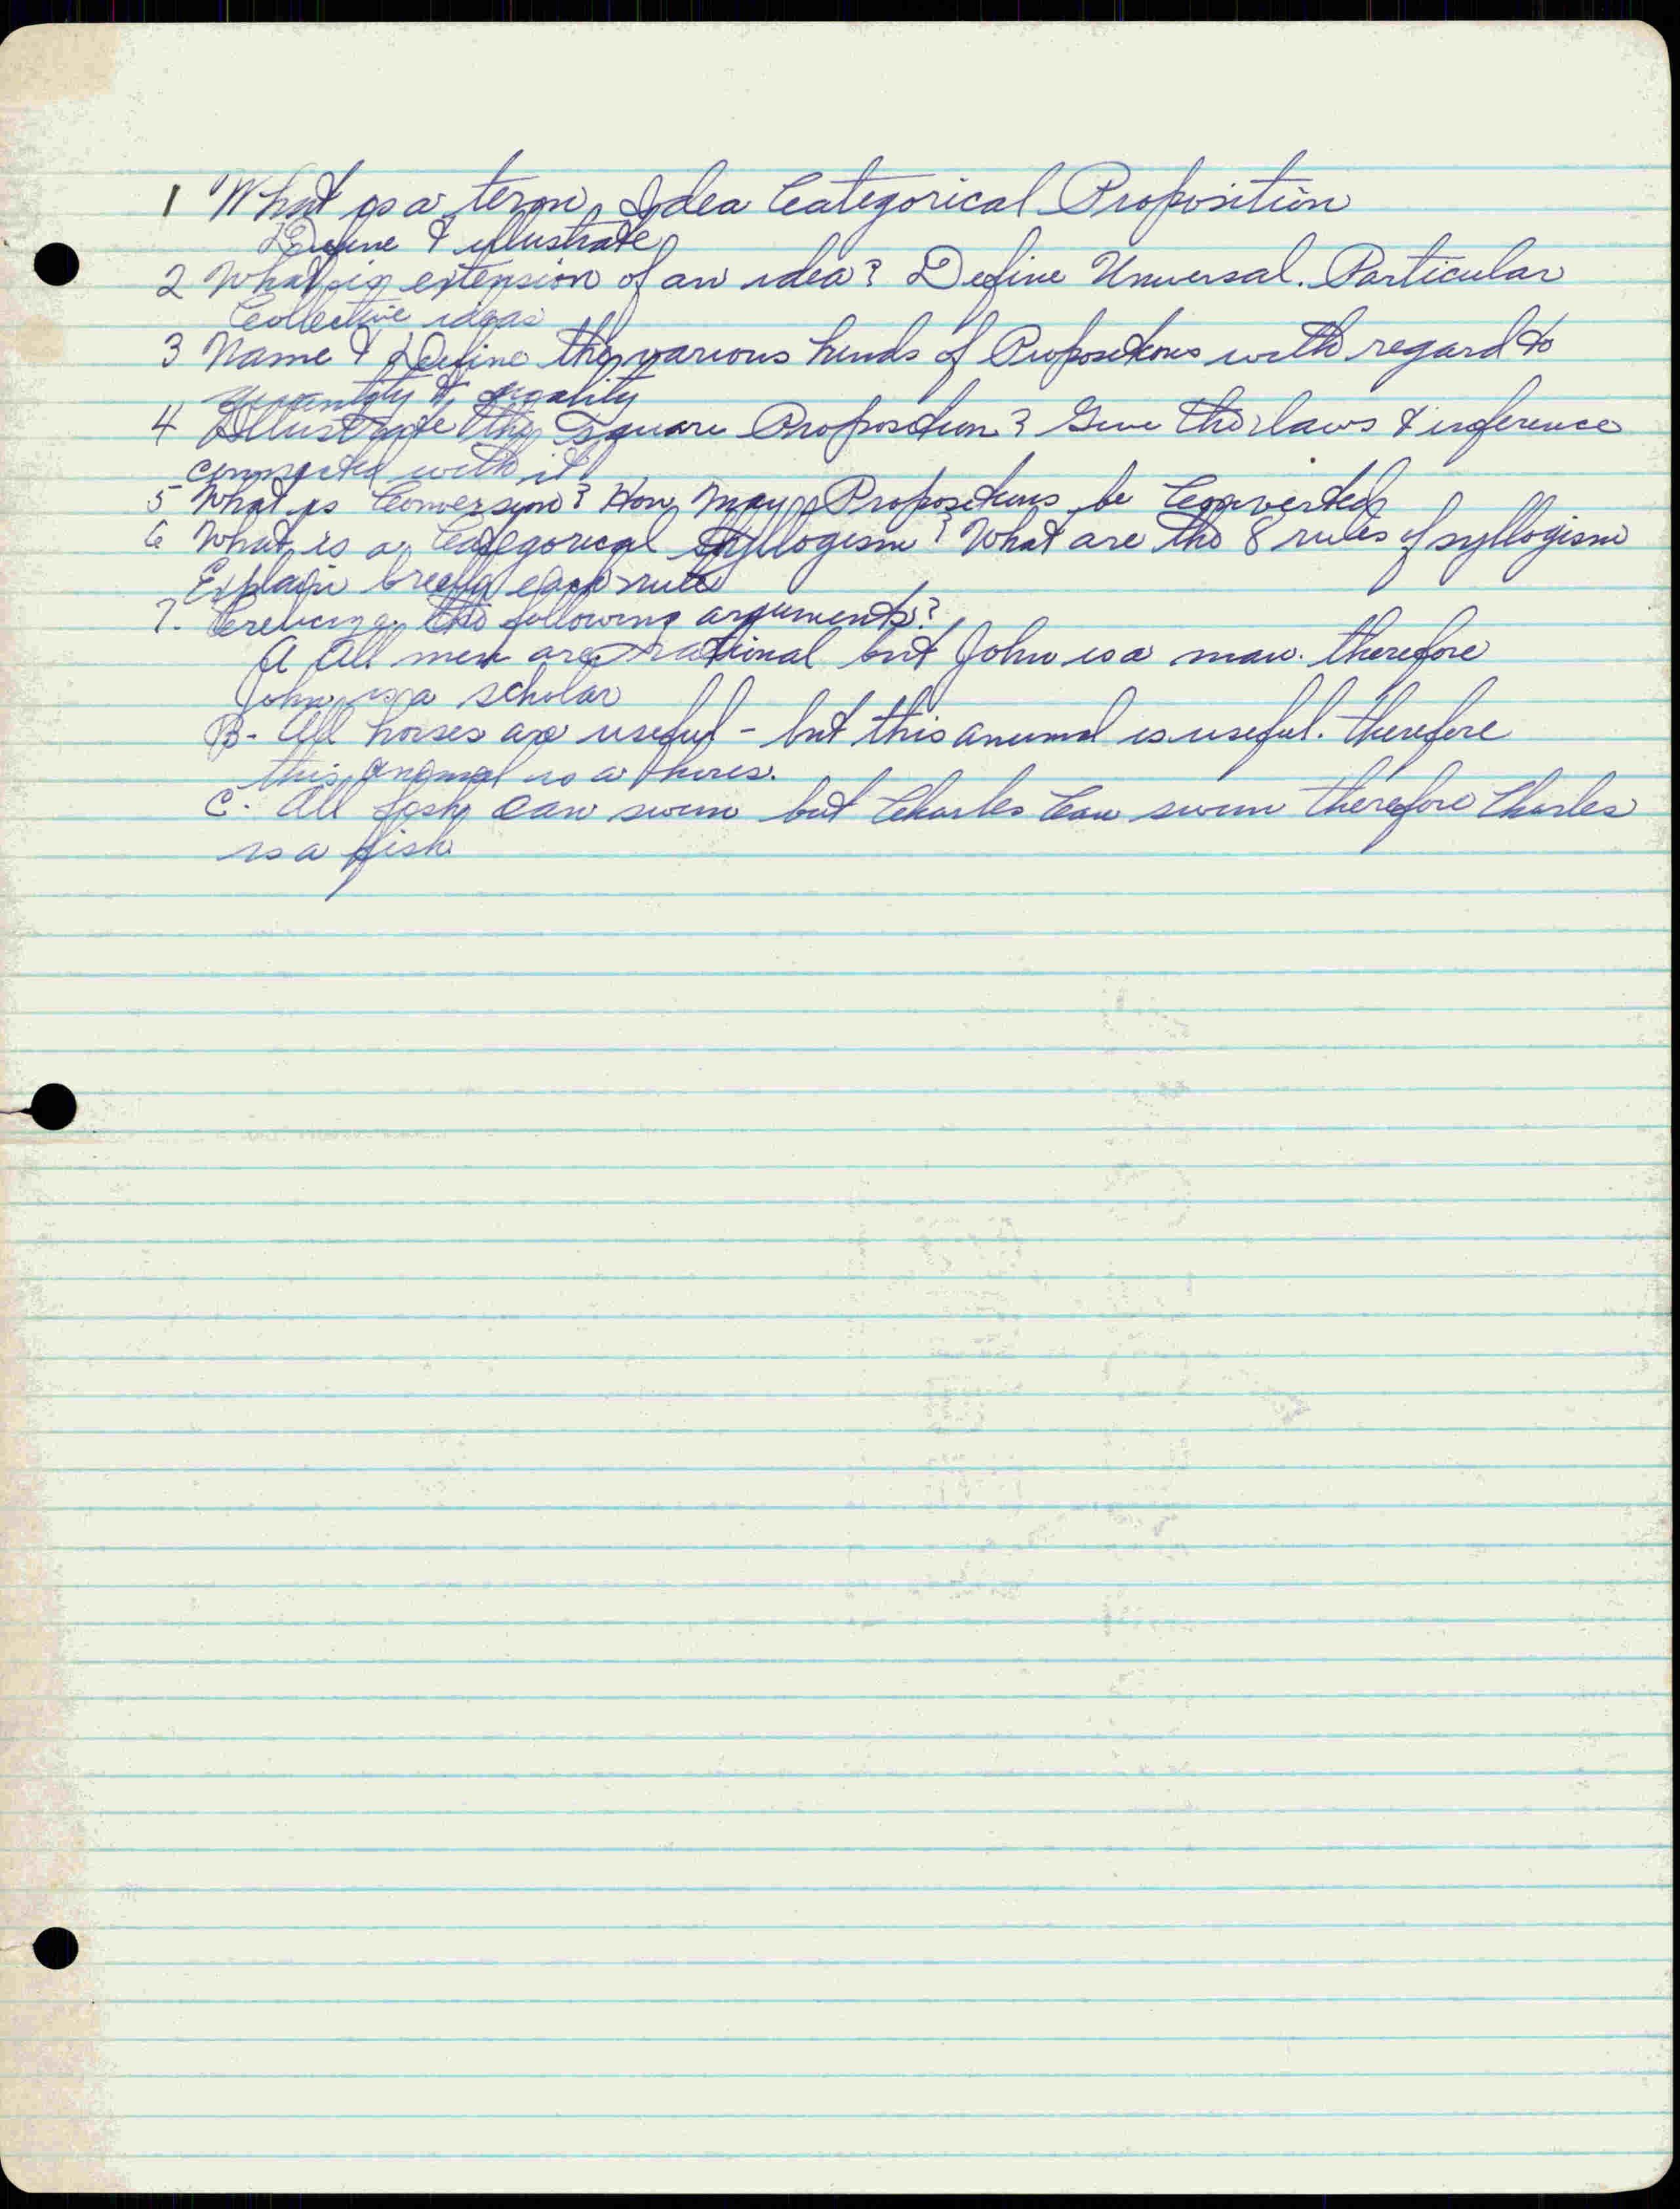 1 What is a term, Idea Categorical Proposition
Define & illustrate
2 What is extension of an idea? Define Universal. Particular
Collective ideas
3 Name & Define the various kinds of Propositions with regard to
quantity & quality
4 Illustrate the Square Proposition? Give the laws & inference
connected with it
5 What is Conversion? How may Propositions be Converted
6 What is a Categorical Syllogism? What are the 8 rules of syllogism
Explain briefly each rule
7. the following arguments?
A All men are rational but John is a man. therefore
John is a scholar
B- All horses are useful - but this animal is useful. therefore
this animal is a hores.
C. All fish can swim but Charles can swim therefore Charles
is a fish